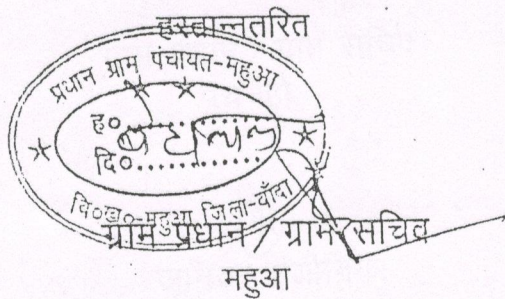 हस्तान्तरित
प्रधान ग्राम पंचायत-महुआ
ह०
दि०
वि०ख०-महुआ जिला-बाँदा
ग्राम प्रधान / ग्राम सचिव
महुआ